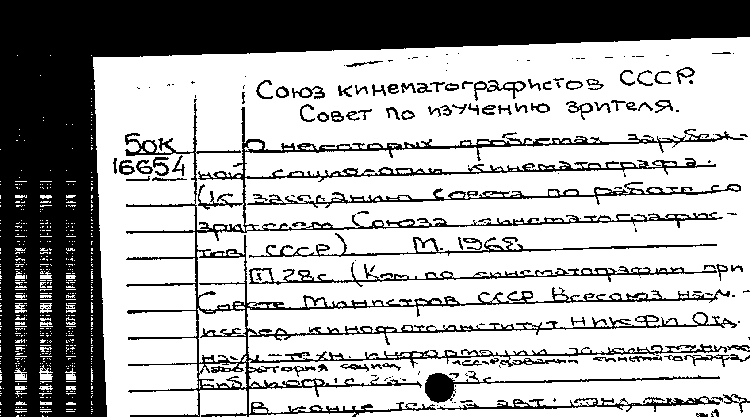 Союз кинематографистов СССР.
Совет по изучению зрителя.
Бок
16654
О некоторых проблемах зарубеж-
ной социологии кинематографа.
(К заседанию совета по работе со
зрителем Союза кинематографис-
тов СССР) М., 1968
28с (Ком. по кинематографии при
Совете Министров СССР Всесоюз науч.-
исслед кинофотоинститут НИКФИ Отд.
науч-техн. информации
Лаборатория социол. исследований кинематографа)
Библиогр.: с.
В конце